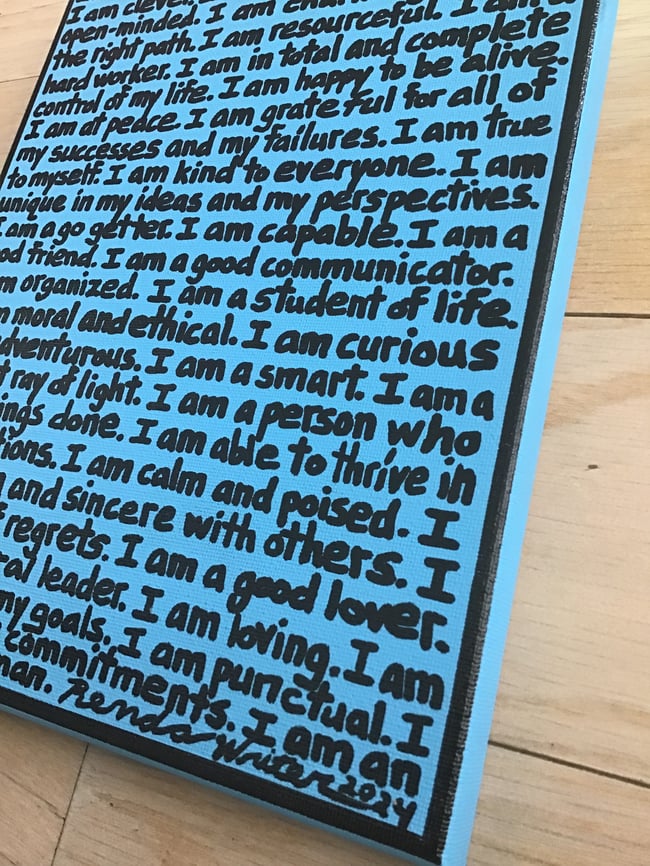 I am clever.
open-minded. I am
the right path. I am resourceful. I am a
hard worker. I am in total and complete
control of my life. I am happy to be alive.
I am at peace. I am grateful for all of
my successes and my failures. I am true
to myself. I am kind to everyone. I am
unique in my ideas and my perspectives.
I am a go getter. I am capable. I am a
friend. I am a good communicator.
organized. I am a student of life.
moral and ethical. I am curious
adventurous. I am a smart. I am a
ray of light. I am a person who
done. I am able to thrive in
I am calm and poised. I
and sincere with others. I
regrets. I am a good lover.
leader. I am loving. I am
my goals. I am punctual. I
commitments. I am an
Renda Writer 2024